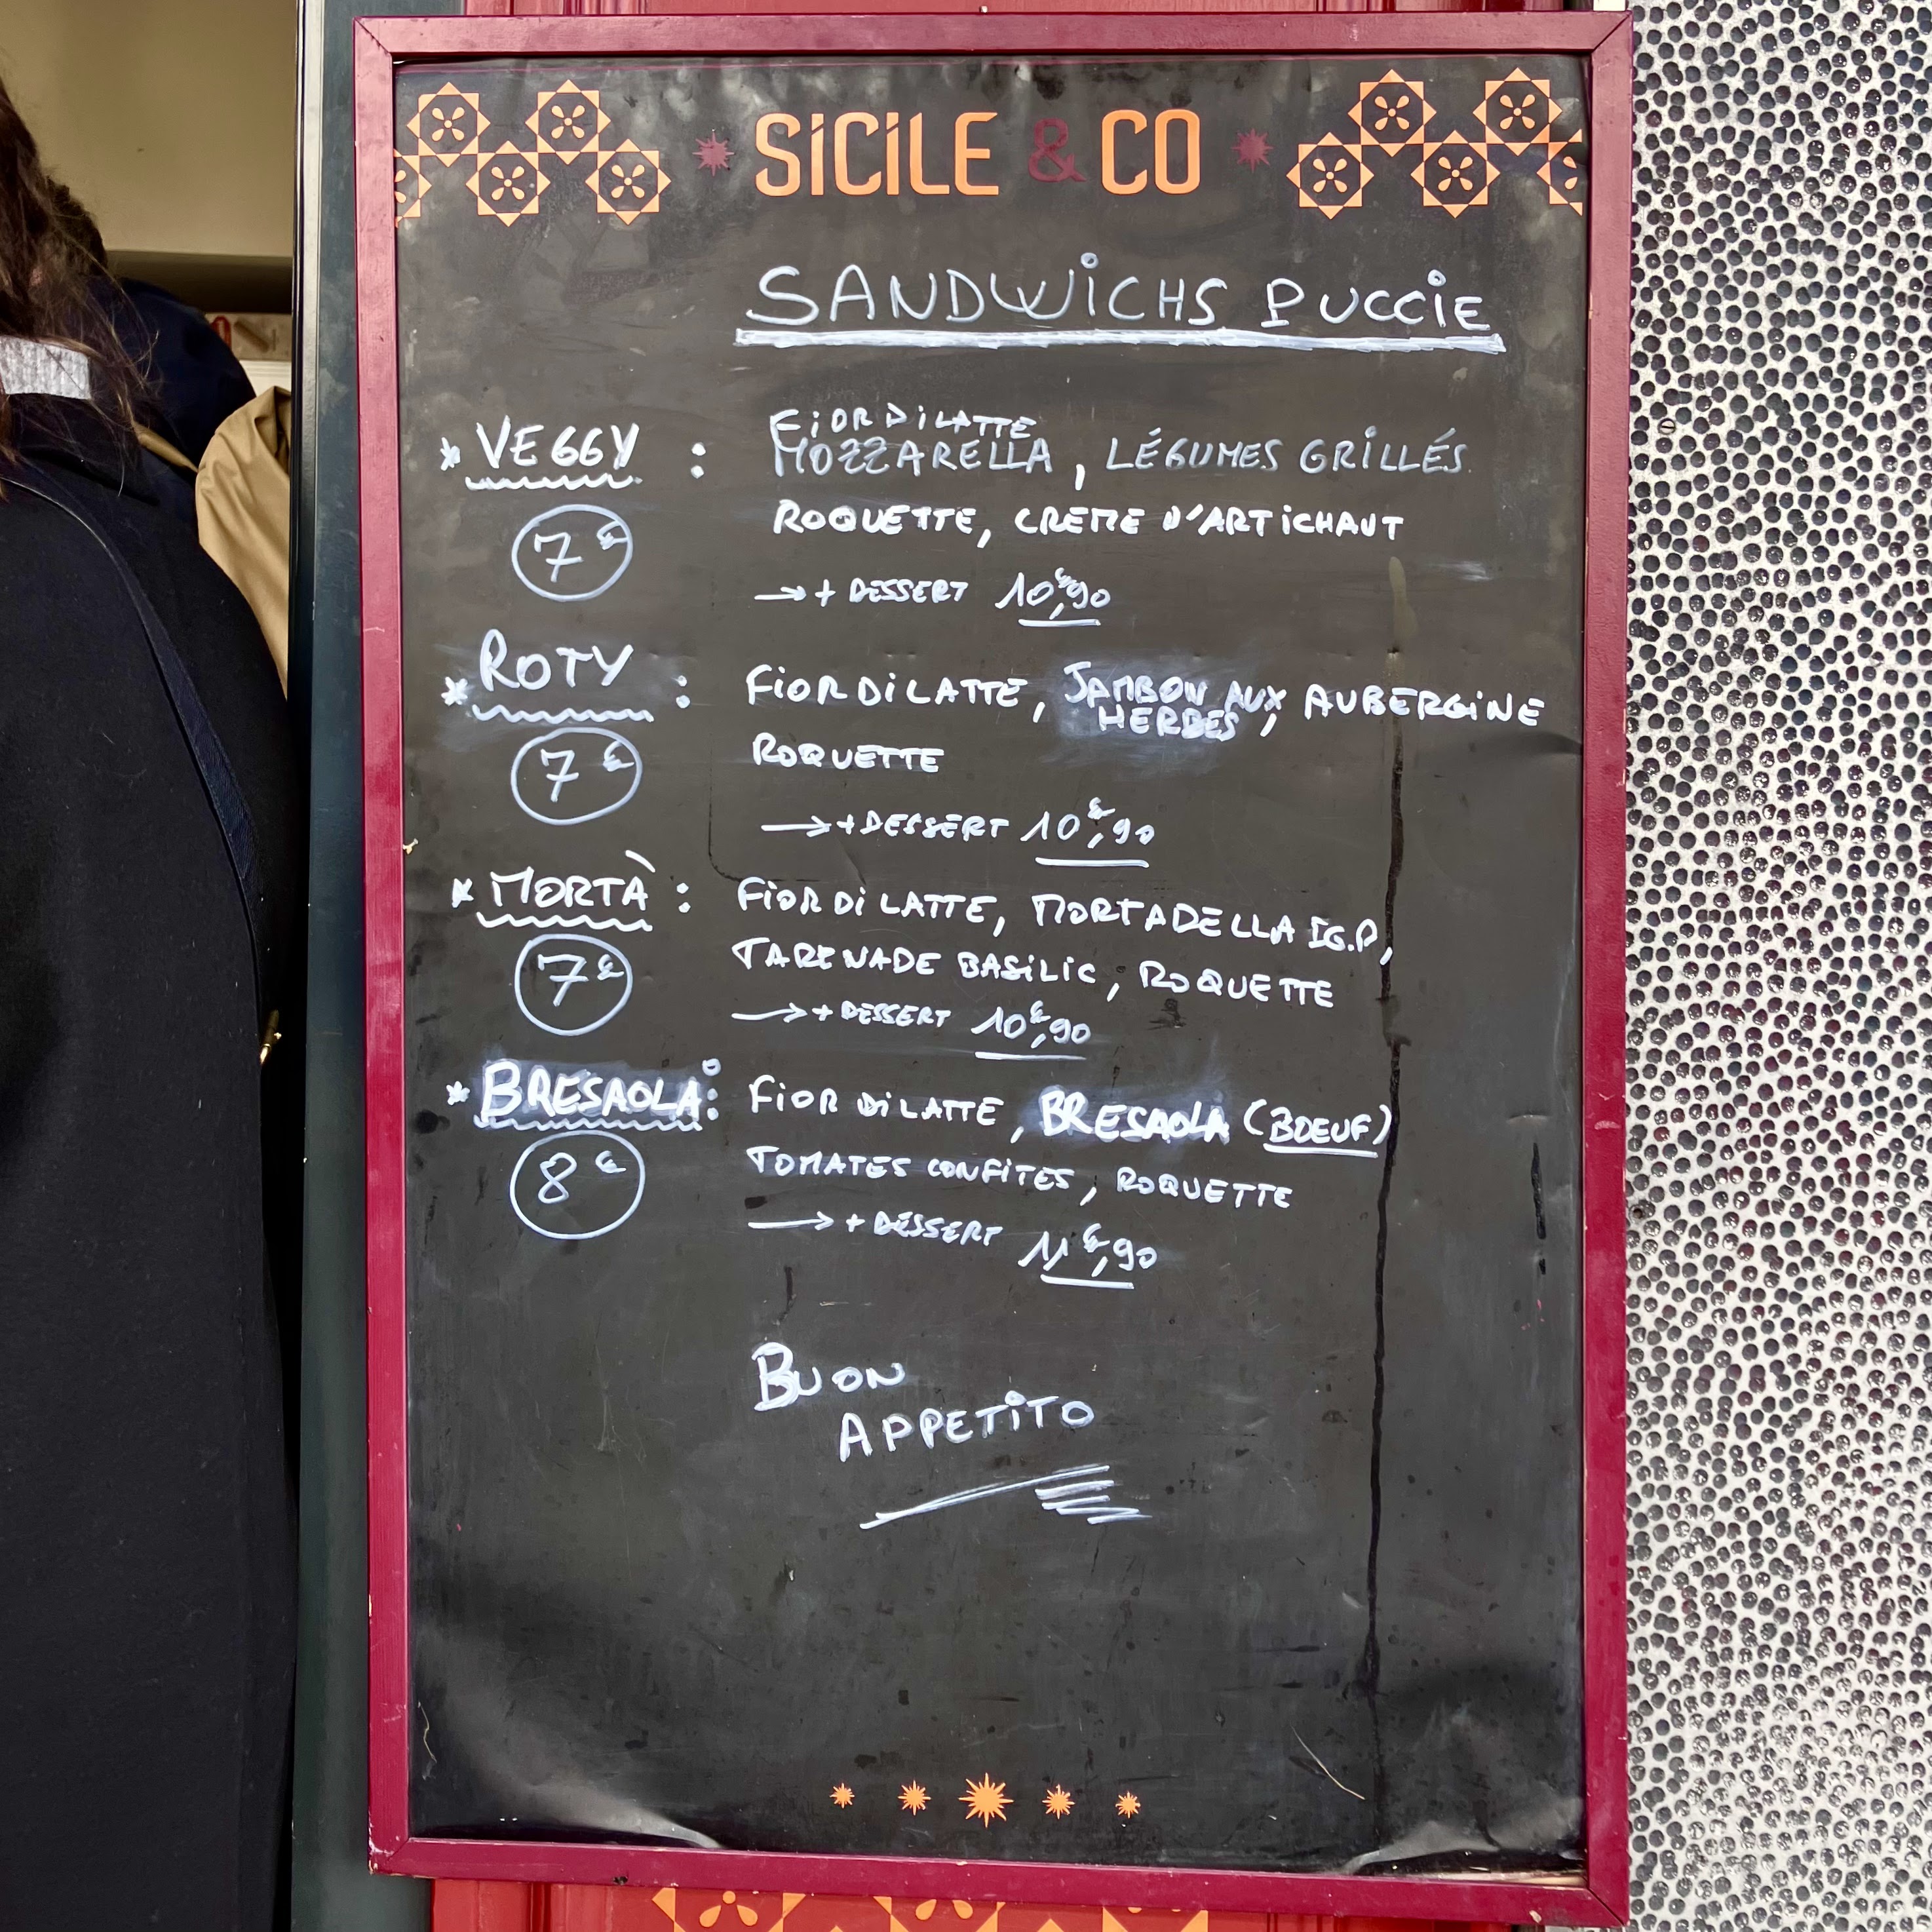 SICILE & CO
SANDWICHS PUCCIE
* VEGGY : FIOR DI LATTE
MOZZARELLA, LÉGUMES GRILLÉS
7€ ROQUETTE, CREME D'ARTICHAUT
→ + DESSERT 10€,90
* ROTY : FIOR DI LATTE, JAMBON AUX HERBES, AUBERGINE
7€ ROQUETTE
→ + DESSERT 10€,90
* MORTÀ : FIOR DI LATTE, MORTADELLA I.G.P,
7€ TAPENADE BASILIC, ROQUETTE
→ + DESSERT 10€,90
* BRESAOLA : FIOR DI LATTE, BRESAOLA (BOEUF)
8€ TOMATES CONFITES, ROQUETTE
→ + DESSERT 11€,90
BUON
APPETITO